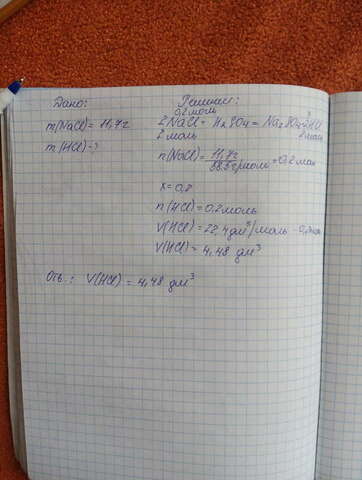 Дано:
Решение:
0,2 моль
m(NaCl) = 11,7г
2NaCl + H2SO4 = Na2SO4 + 2HCl
m(HCl) - ?
2 моль
2 моль
n(NaCl) = 11,7г / 58,5г/моль = 0,2 мол
x = 0,2
n(HCl) = 0,2 моль
V(HCl) = 22,4 дм³/моль · 0,2моль
V(HCl) = 4,48 дм³
Отв.: V(HCl) = 4,48 дм³